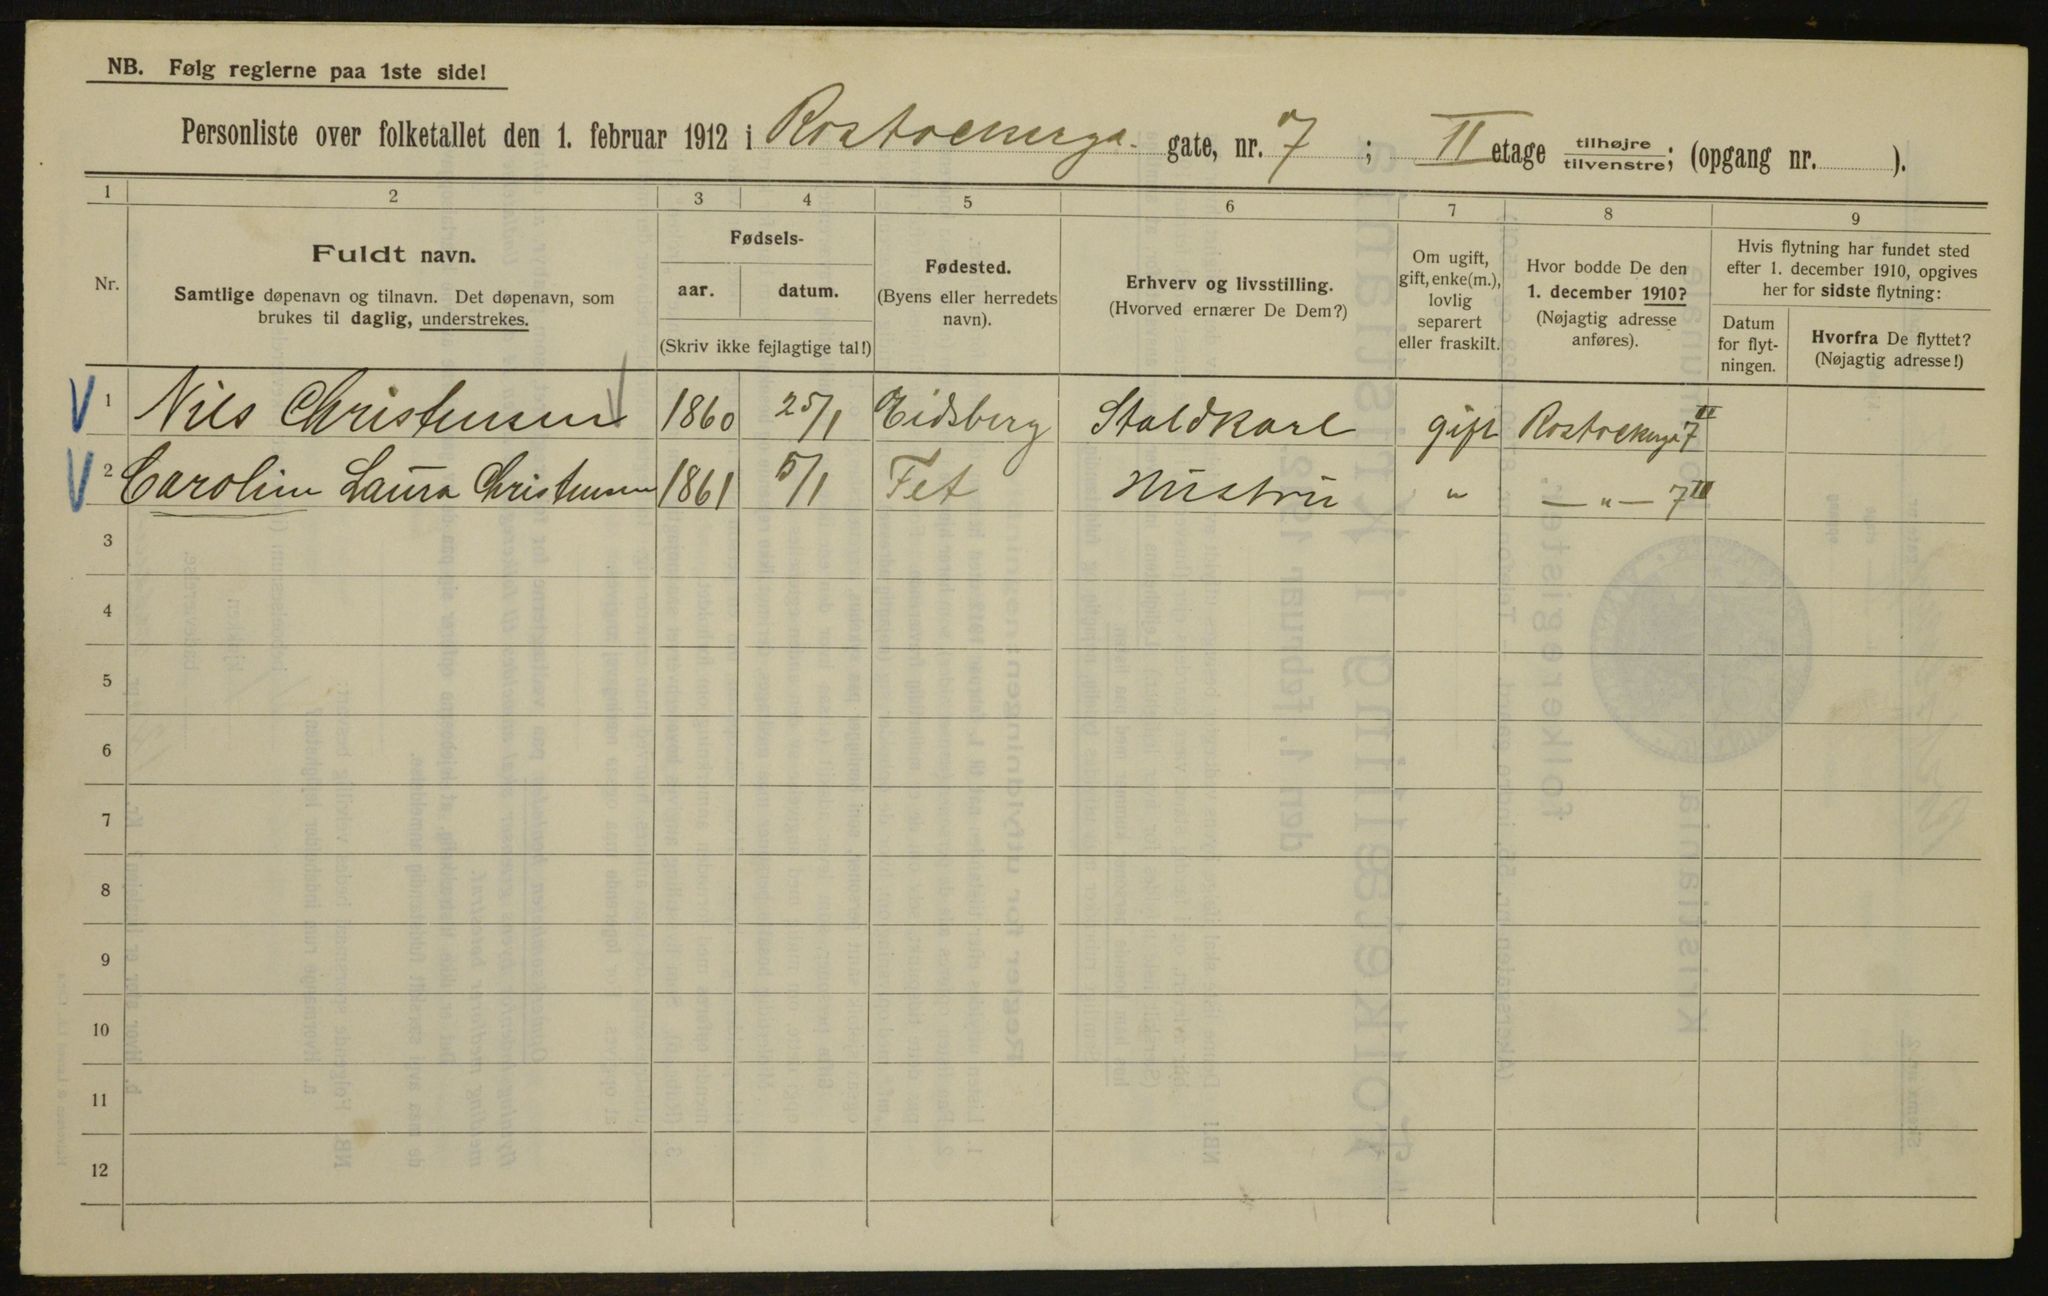 NB. Følg reglerne paa 1ste side!
Personliste over folketallet den 1. februar 1912 i Rostockerga. gate, nr. 7 ; II etage tilhøjre/tilvenstre; (opgang nr. ).
1 2 3 4 5 6 7 8 9
Nr.
Fuldt navn.
Samtlige døpenavn og tilnavn. Det døpenavn, som
brukes til daglig, understrekes.
Fødsels-
aar. datum.
(Skriv ikke fejlagtige tal!)
Fødested.
(Byens eller herredets
navn).
Erhverv og livsstilling.
(Hvorved ernærer De Dem?)
Om ugift,
gift, enke(m.),
lovlig
separert
eller fraskilt.
Hvor bodde De den
1. december 1910?
(Nøjagtig adresse
anføres).
Hvis flytning har fundet sted
efter 1. december 1910, opgives
her for sidste flytning:
Datum
for flyt-
ningen.
Hvorfra De flyttet?
(Nøjagtig adresse!)
1 Nils Christensen 1860 25/1 Eidsberg Staldkarl gift Rostockerga 7 III
2 Caroline Laura Christensen 1861 5/1 Fet Hustru " — " — 7 III
3
4
5
6
7
8
9
10
11
12